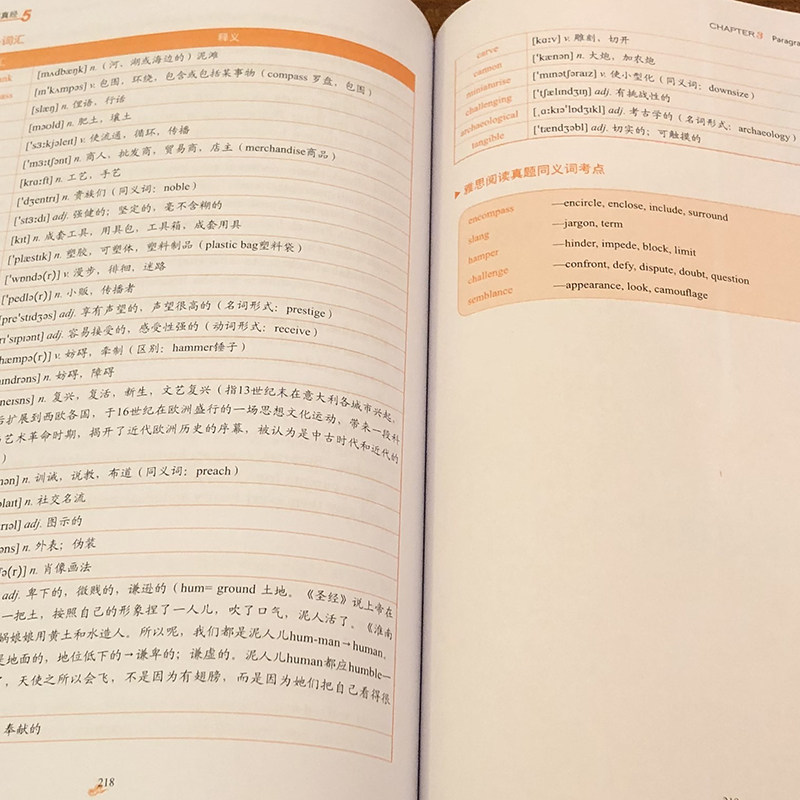 真经5
词汇 释义
[mʌdbæŋk] n.（河、湖或海边的）泥滩
[ɪn'kʌmpəs] v. 包围，环绕，包含或包括某事物（compass 罗盘，包围）
[slæŋ] n. 俚语，行话
[məʊld] n. 肥土，壤土
['sɜ:kjəleɪt] v. 使流通，循环，传播
['mɜ:tʃənt] n. 商人，批发商，贸易商，店主（merchandise商品）
[krɑ:ft] n. 工艺，手艺
['dʒentrɪ] n. 贵族们（同义词：noble）
['stɜ:dɪ] adj. 强健的；坚定的，毫不含糊的
[kɪt] n. 成套工具，用具包，工具箱，成套用具
['plæstɪk] n. 塑胶，可塑体，塑料制品（plastic bag塑料袋）
['wɒndə(r)] v. 漫步，徘徊，迷路
['pedlə(r)] n. 小贩，传播者
[pre'stɪdʒəs] adj. 享有声望的，声望很高的（名词形式：prestige）
rɪ'sɪpɪənt] adj. 容易接受的，感受性强的（动词形式：receive）
hæmpə(r)] v. 妨碍，牵制（区别：hammer锤子）
ɪndrəns] n. 妨碍，障碍
neɪsns] n. 复兴，复活，新生，文艺复兴（指13世纪末在意大利各城市兴起，
后扩展到西欧各国，于16世纪在欧洲盛行的一场思想文化运动，带来一段科
艺术革命时期，揭开了近代欧洲历史的序幕，被认为是中古时代和近代的
）
mən] n. 训诫，说教，布道（同义词：preach）
laɪt] n. 社交名流
rɪəl] adj. 图示的
əns] n. 外表；伪装
ə(r)] n. 肖像画法
adj. 卑下的，微贱的，谦逊的（hum= ground 土地。《圣经》说上帝在
一把土，按照自己的形象捏了一人儿，吹了口气，泥人活了。《淮南
娲娘娘用黄土和水造人。所以呢，我们都是泥人儿hum-man→human。
是地面的，地位低下的→谦卑的；谦虚的。泥人儿human都应humble—
。天使之所以会飞，不是因为有翅膀，而是因为她们把自己看得很
奉献的
218
CHAPTER 3 Paragra
carve [kɑ:v] v. 雕刻，切开
cannon ['kænən] n. 大炮，加农炮
miniaturise ['mɪnətʃəraɪz] v. 使小型化（同义词：downsize）
challenging ['tʃælɪndʒɪŋ] adj. 有挑战性的
archaeological [ˌɑ:kɪə'lɒdʒɪkl] adj. 考古学的（名词形式：archaeology）
tangible ['tændʒəbl] adj. 切实的；可触摸的
雅思阅读真题同义词考点
encompass —encircle, enclose, include, surround
slang —jargon, term
hamper —hinder, impede, block, limit
challenge —confront, defy, dispute, doubt, question
semblance —appearance, look, camouflage